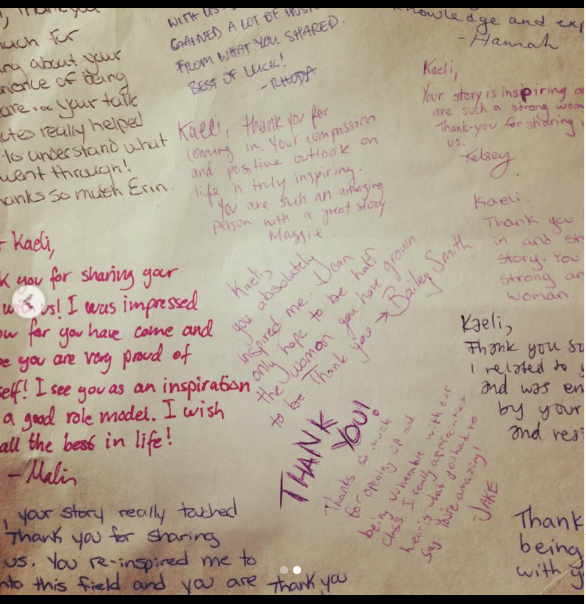 much for
about your
of being
care. your talk
really helped
to understand what
went through!
so much Erin.
WITH US.
GAINED A LOT OF
FROM WHAT YOU SHARED.
BEST OF LUCK!
- RHODA
knowledge and
- Hannah
Kaeli,
Your story is inspiring
are such a strong
Thank-you for sharing
us.
Kelsey
Kaeli, thank you for
coming in. Your compassion
and positive outlook on
life is truly inspiring.
You are such an amazing
person with a great story.
Maggie
Kaeli,
you for sharing your
us! I was impressed
far you have come and
you are very proud of
I see you as an inspiration
a good role model. I wish
all the best in life!
- Malin
Kaeli,
you absolutely
inspired me. I can
only hope to be half
the woman you have grown
to be. Thank you → Bailey Smith
Kaeli.
Thank you
in and
story. You
strong
woman
Kaeli,
Thank you so
I related to
and was
by your
and
THANK
YOU!
Thanks so much
for opening up and
being vulnerable with our
class. I really appreciated
hearing what you had to
say. You're amazing!
JAKE
, your story really touched
Thank you for sharing
us. You re-inspired me to
into this field and you are
thank you
Thank
being
with